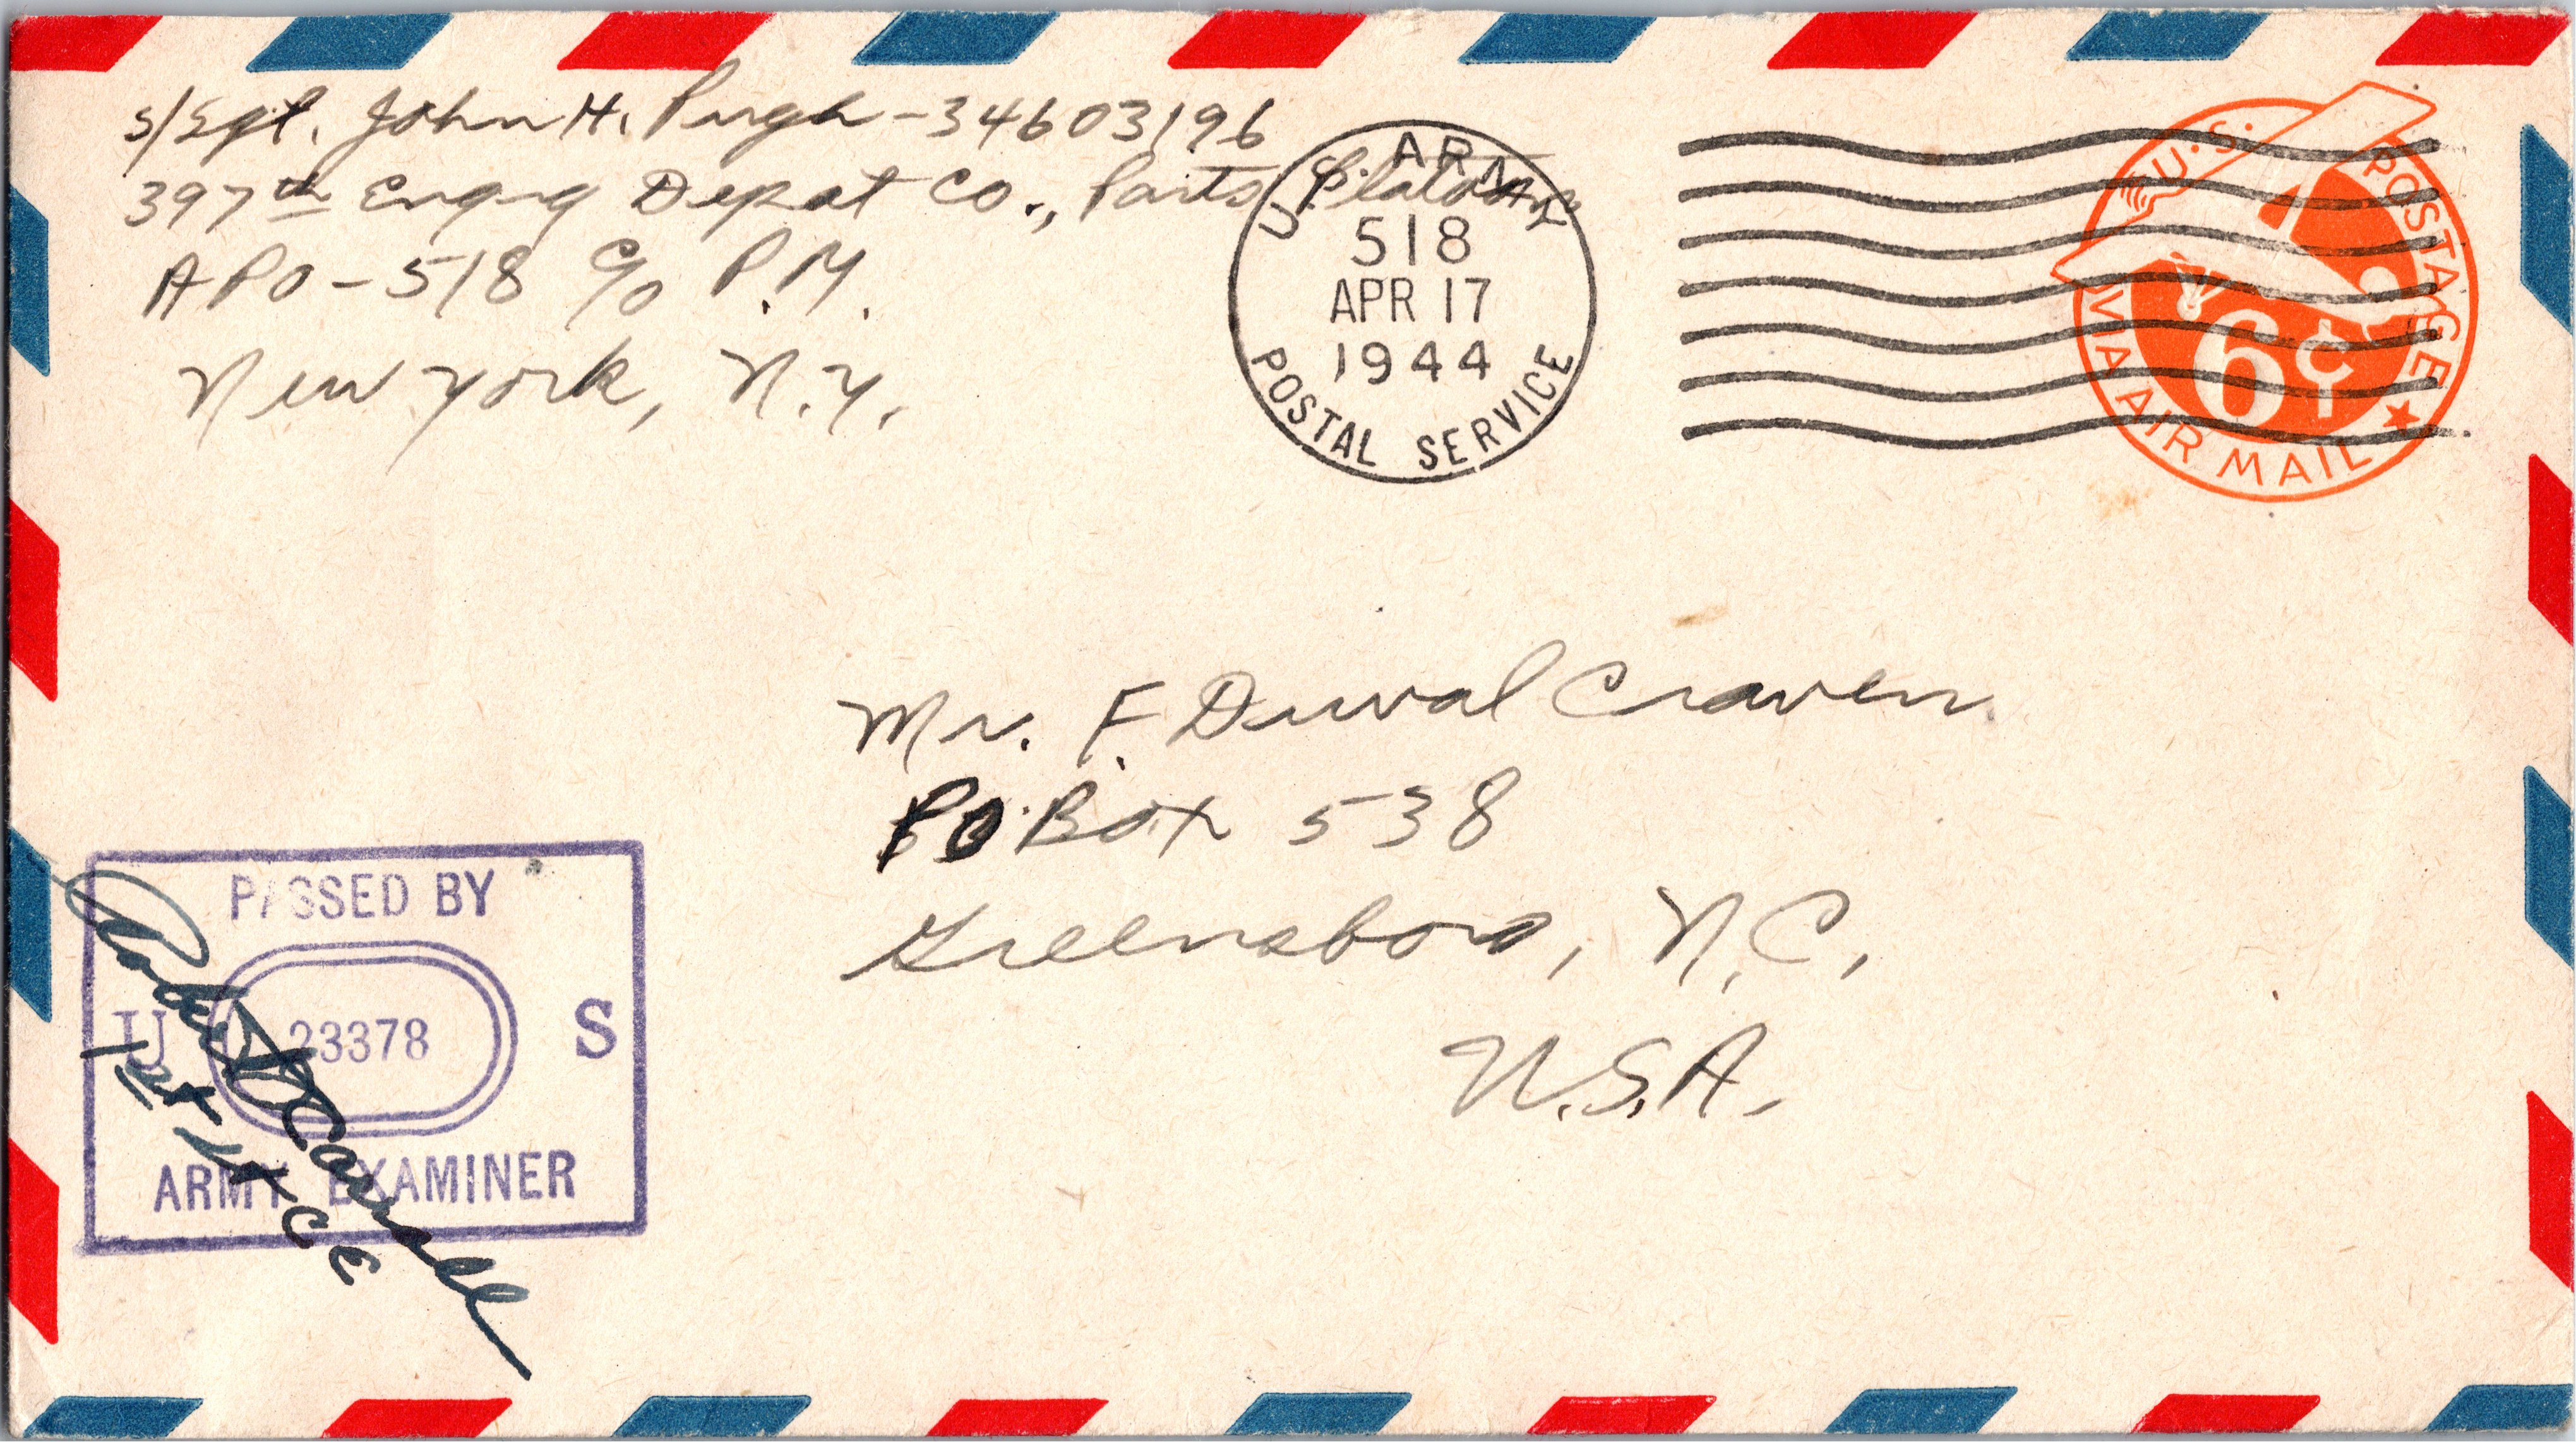 S/Sgt. John H. Pugh - 34603196
397th Engrg Depot Co., Parts Platoon
APO - 518 c/o P.M.
New York, N.Y.
U.S. ARMY
518
APR 17
1944
POSTAL SERVICE
U.S. POSTAGE
6¢
VIA AIR MAIL
Mr. F. Duval Craven
PO Box 538
Greensboro, N.C.
U.S.A.
PASSED BY
U 23378 S
ARMY EXAMINER
Robert
1st Lt CE